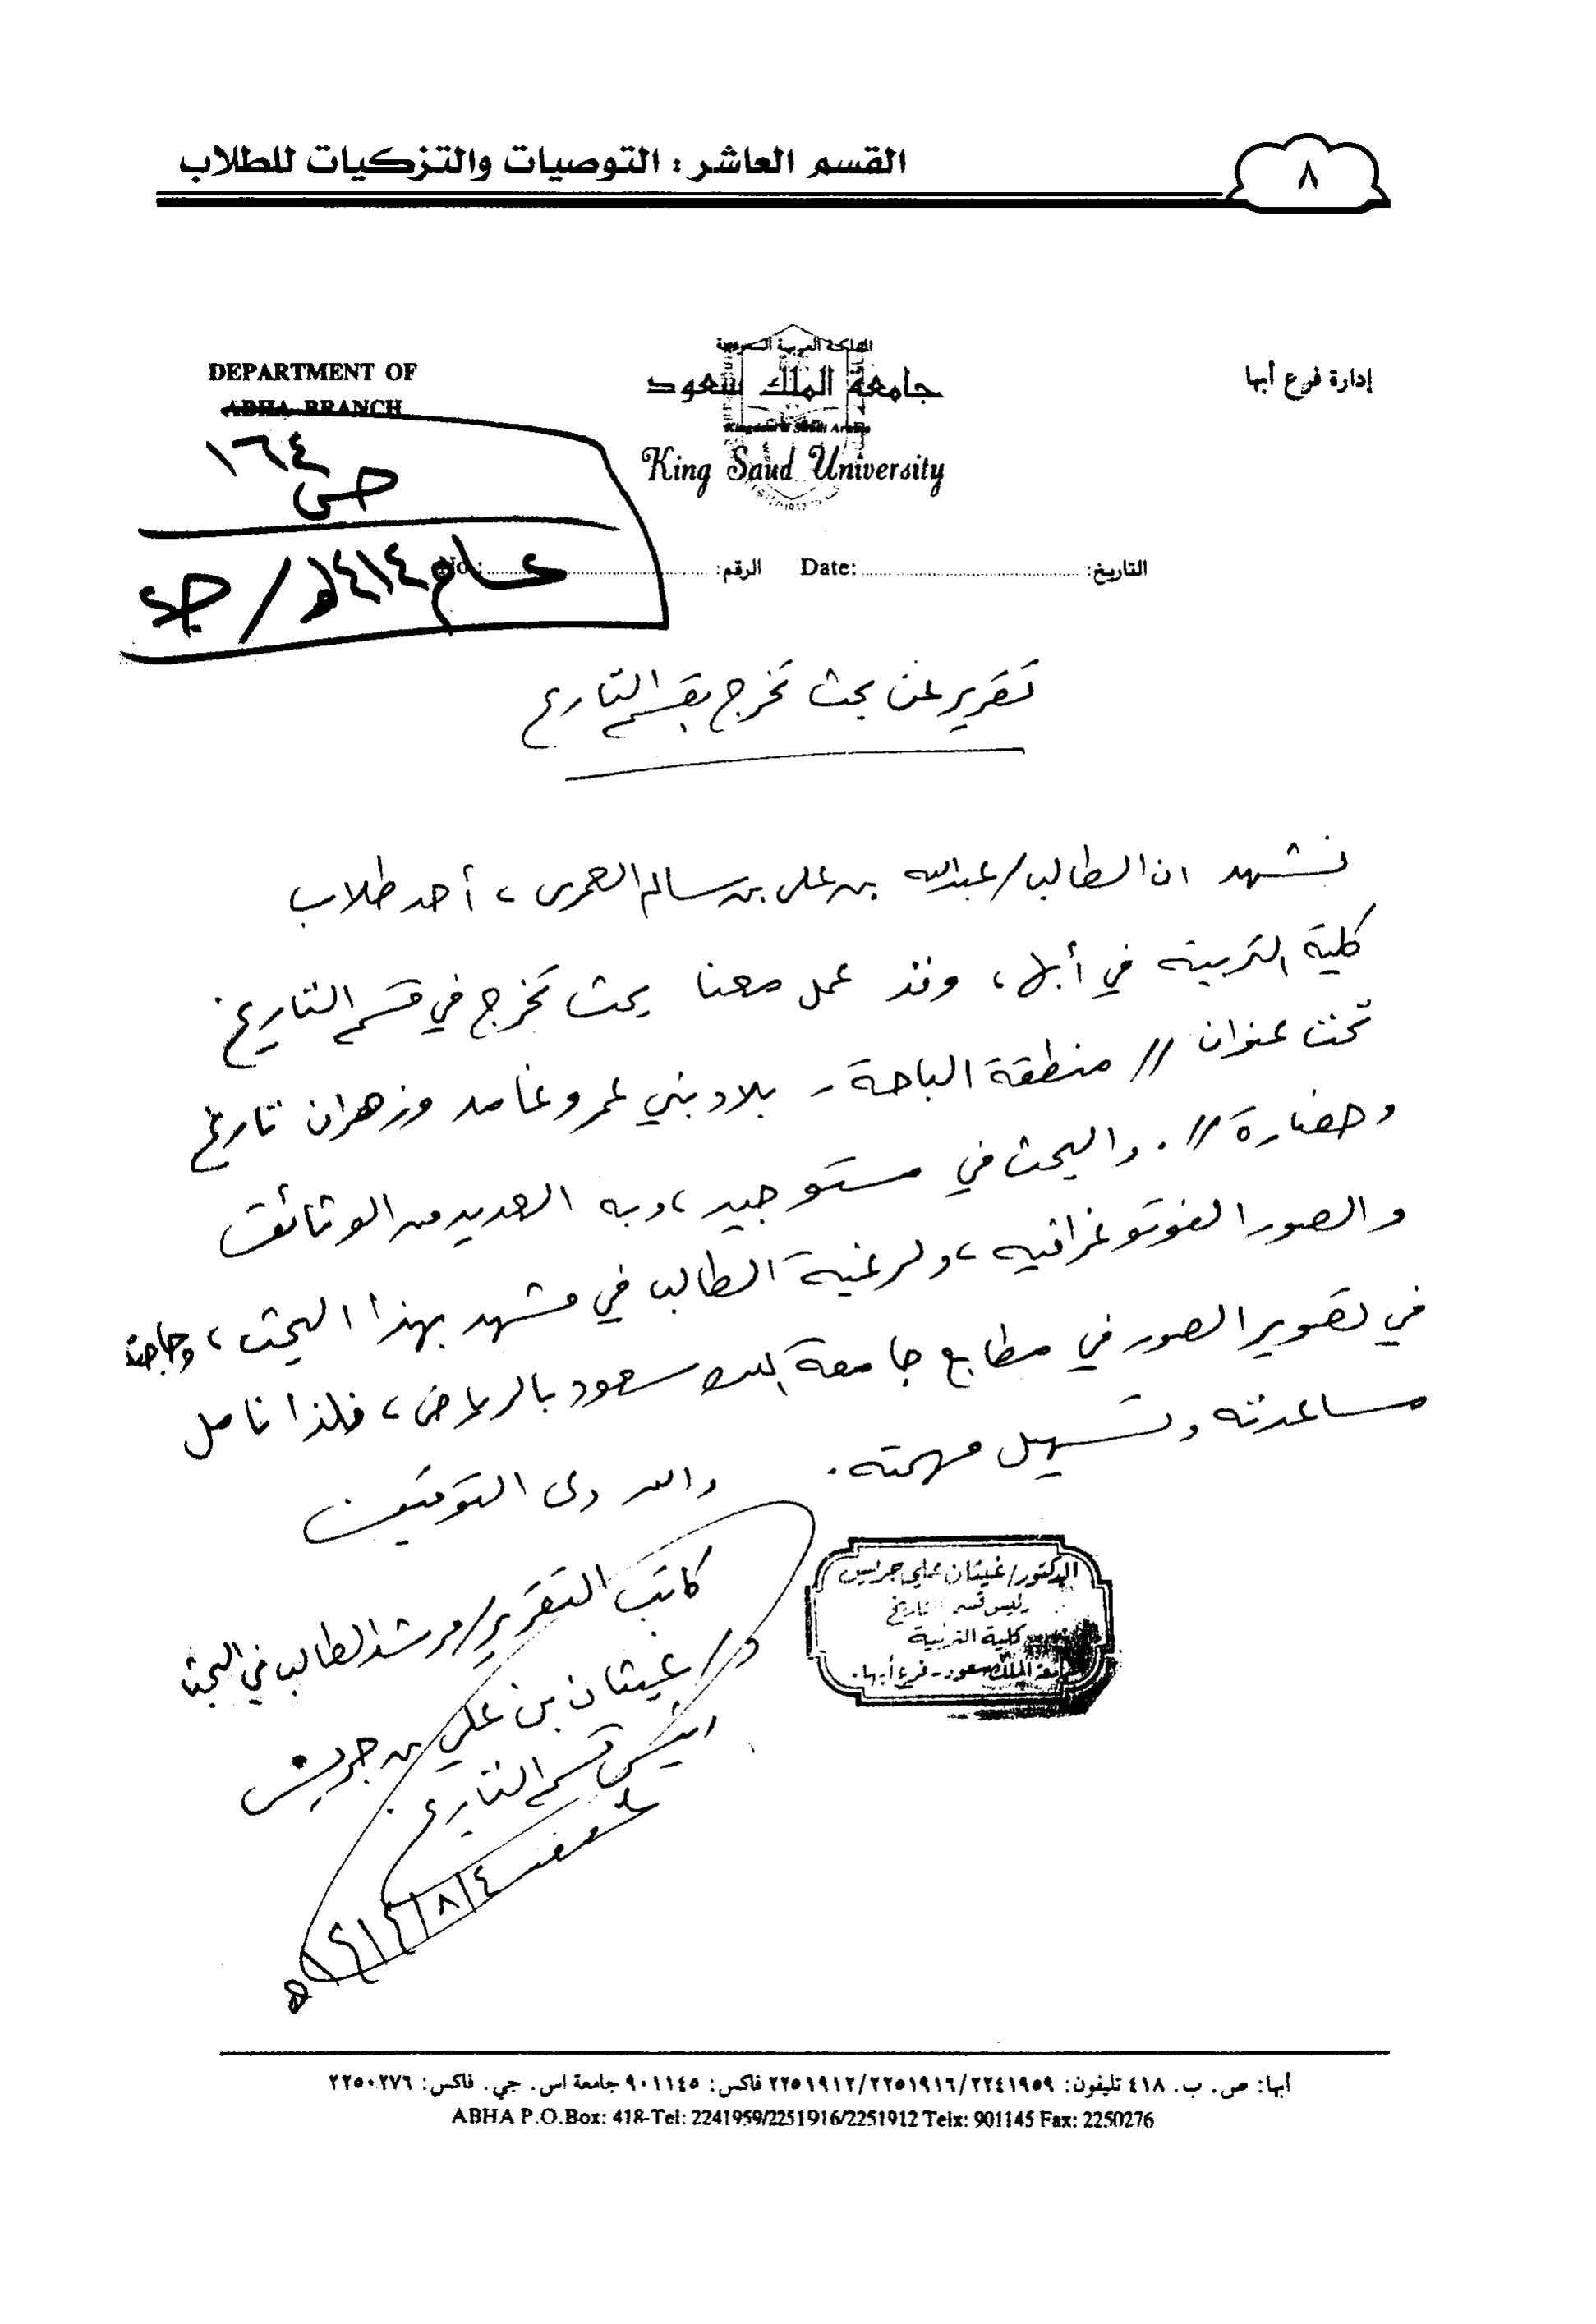 القسم العاشر : التوصيات والتزكيات للطلاب
٨
إدارة فرع أبها
المملكة العربية السعودية
جامعة الملك سعود
Kingdom of Saudi Arabia
King Saud University
DEPARTMENT OF
ABHA BRANCH
١٦٤
عام ١٤١٤هـ / جـ٤
التاريخ: Date: الرقم: No.:
تقرير عن بحث تخرج بقسم التاريخ
نشهد ان الطالب/عبدالله بن علي بن سالم العمري ، أحد طلاب
كلية التربية في أبها ، وقد عمل معنا بحث تخرج في قسم التاريخ
تحت عنوان // منطقة الباحة - بلاد بني عمر وغامد وزهران تاريخ
وحضارة // . والبحث في مستو جيد ، وبه العديد من الوثائق
والصور الفوتوغرافيه ، ولرغبة الطالب في مشهد بهذا البحث ، وحاجته
في تصوير الصور في مطابع جامعة الملك سعود بالرياض ، فلذا نامل
مساعدته وتسهيل مهمته . والله ولي التوفيق
كاتب التقرير/مرشد الطالب في البحث
د/ غيثان بن علي بن جريس
رئيس قسم التاريخ
١٤١٤/٨/٤هـ
الدكتور/غيثان علي جريس
رئيس قسم التاريخ
كلية التربية
جامعة الملك سعود - فرع أبها .
أبها: ص. ب. ٤١٨ تليفون: ٢٢٥١٩١٢/٢٢٥١٩١٦/٢٢٤١٩٥٩ فاكس: ٩٠١١٤٥ جامعة اس. جي. فاكس: ٢٢٥٠٢٧٦
ABHA P.O.Box: 418-Tel: 2241959/2251916/2251912 Telx: 901145 Fax: 2250276